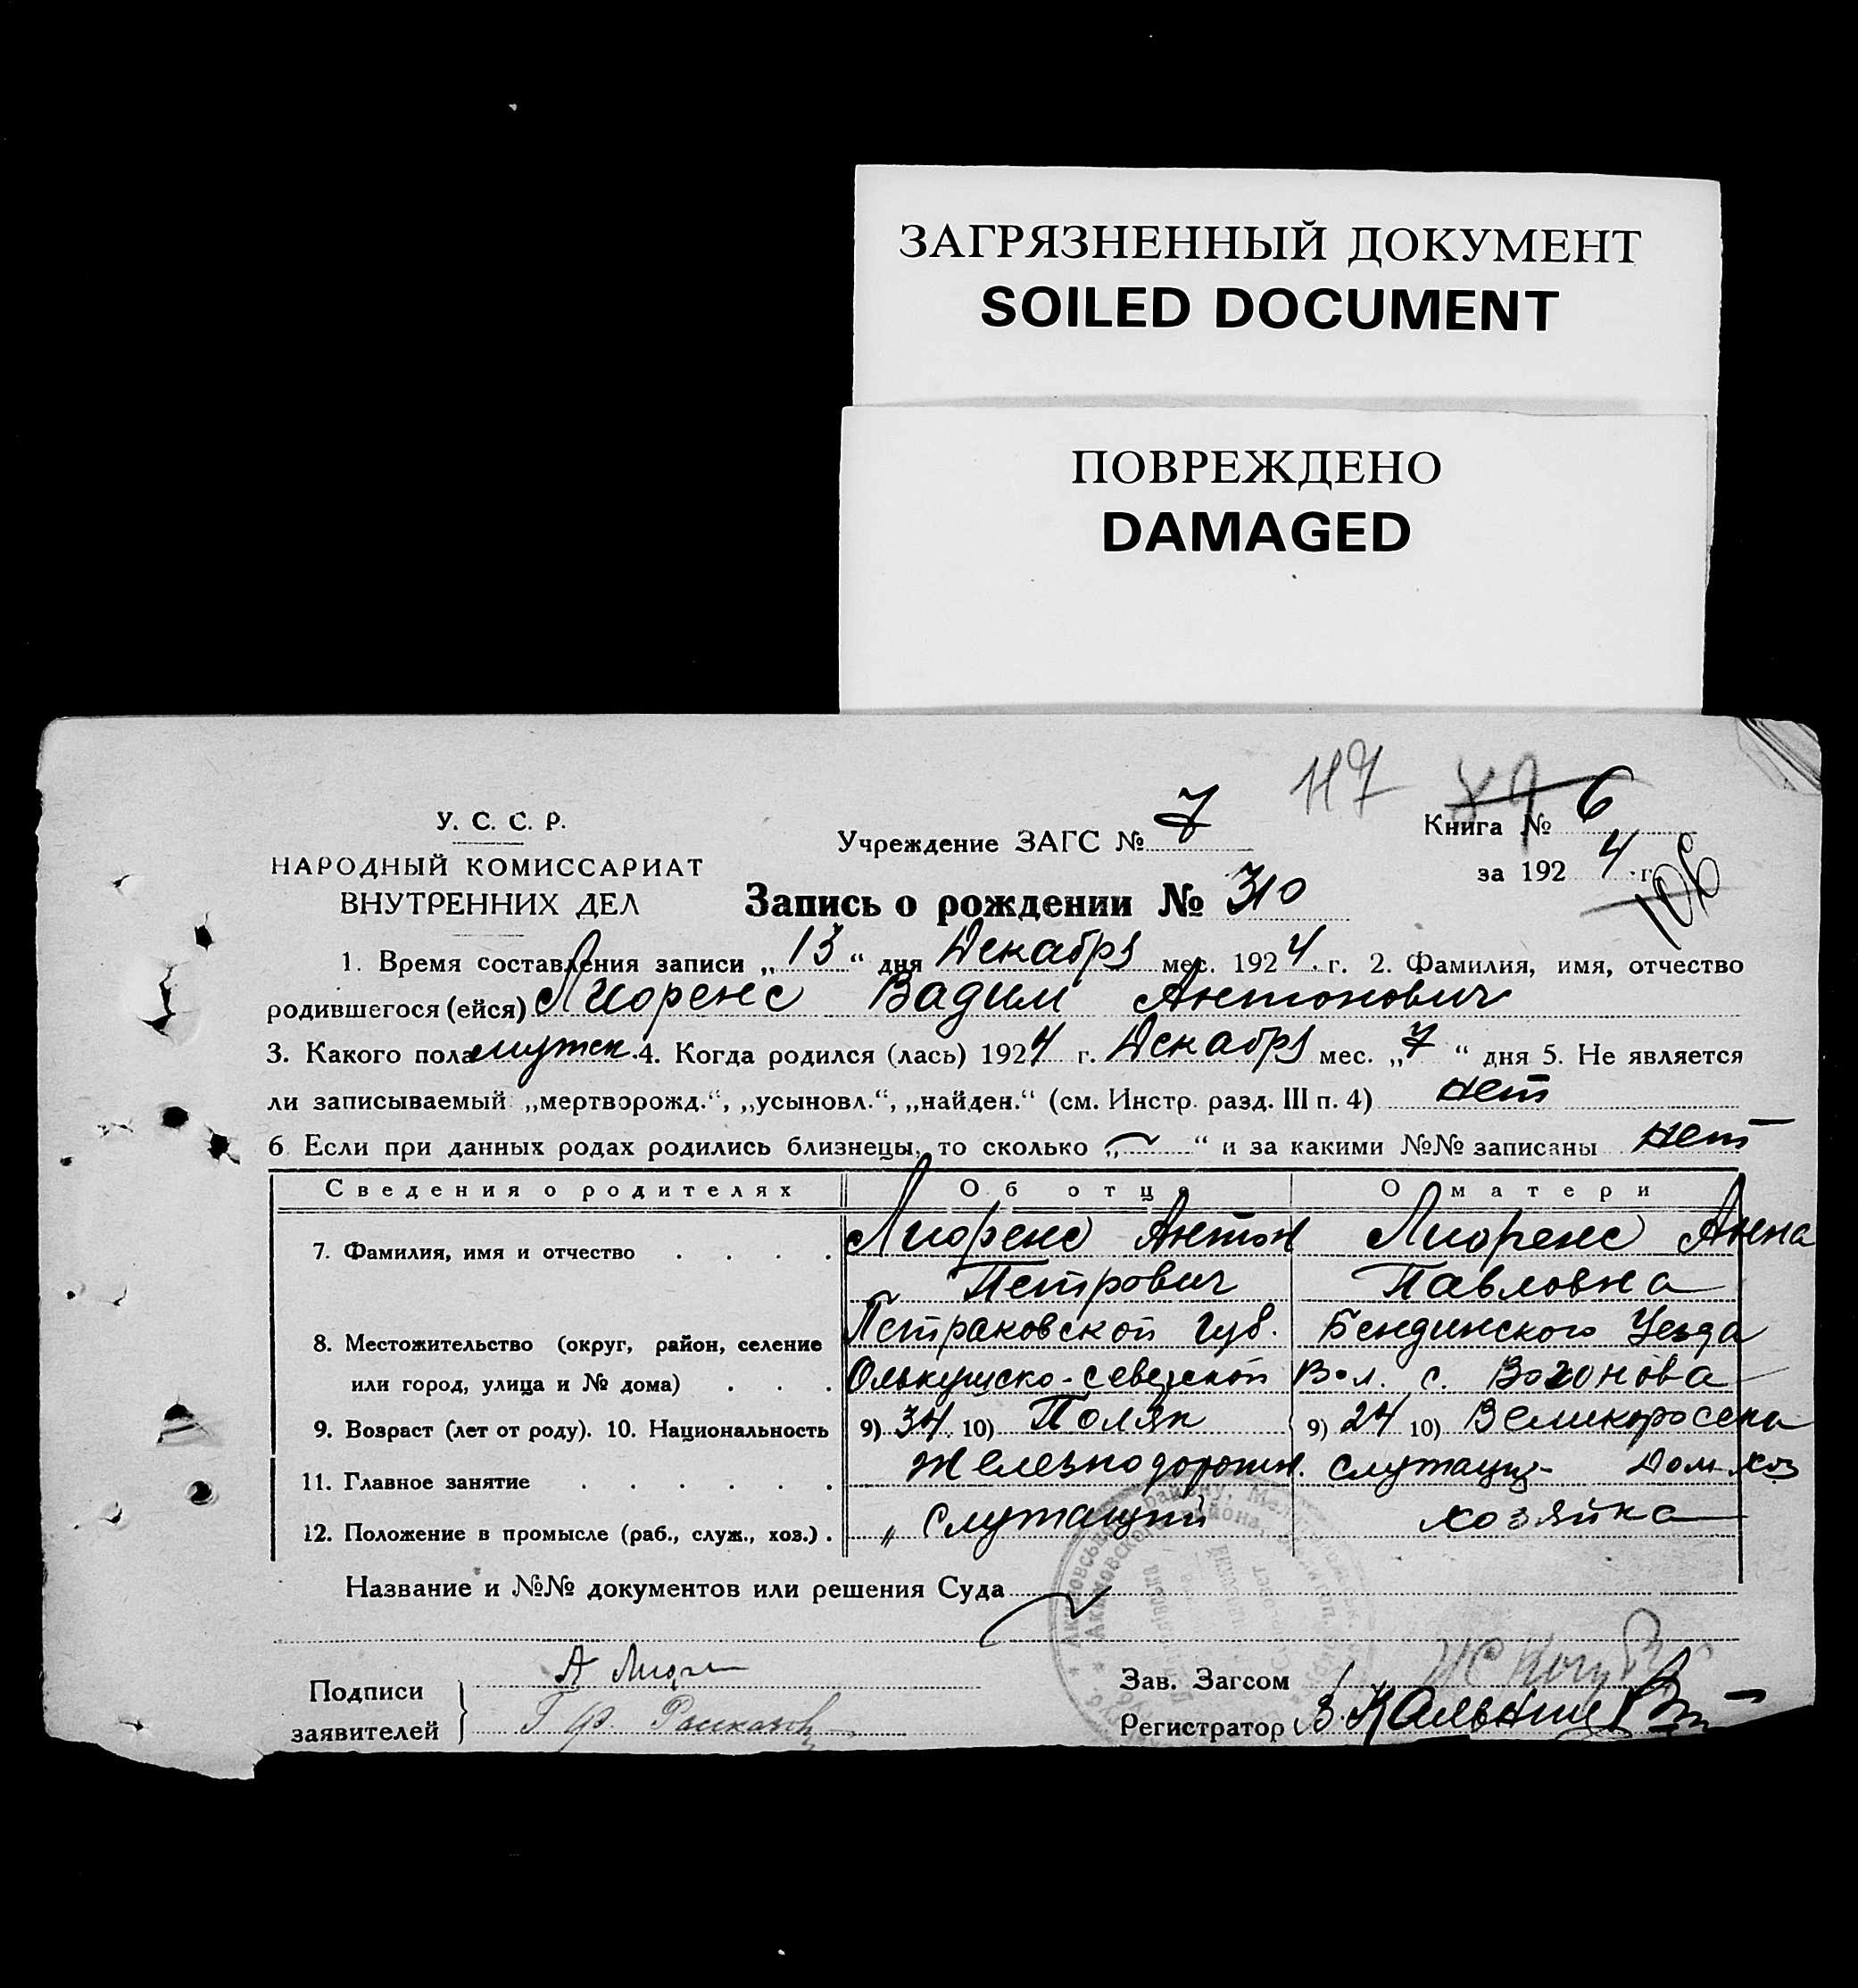 ЗАГРЯЗНЕННЫЙ ДОКУМЕНТ
SOILED DOCUMENT
ПОВРЕЖДЕНО
DAMAGED
117 89
У. С. С. Р.
НАРОДНЫЙ КОМИССАРИАТ
ВНУТРЕННИХ ДЕЛ
Учреждение ЗАГС № 7
Книга № 6
за 1924 г.
106
Запись о рождении № 310
1. Время составления записи „13“ дня Декабря мес. 1924 г. 2. Фамилия, имя, отчество
родившегося (ейся) Лиоренс Вадим Антонович
3. Какого пола мужск. 4. Когда родился (лась) 1924 г. Декабря мес. „7“ дня 5. Не является
ли записываемый „мертворожд.“, „усыновл.“, „найден.“ (см. Инстр. разд. III п. 4) нет
6 Если при данных родах родились близнецы, то сколько „—“ и за какими №№ записаны нет
Сведения о родителях Об отце О матери
7. Фамилия, имя и отчество . . . . Лиоренс Антон Лиоренс Анна
Петрович Павловна
8. Местожительство (округ, район, селение Петраковской Губ. Бендинского Уезда
или город, улица и № дома) . . . Олькушско-севезской Вол. с. Вогонова
9. Возраст (лет от роду). 10. Национальность 9) 34 10) Поляк 9) 24 10) Великоросска
11. Главное занятие . . . . . . Железнодорожн. служащ- Дом хоз
12. Положение в промысле (раб., служ., хоз.) . „ Служащий хозяйка
Название и №№ документов или решения Суда
Подписи
заявителей
А Лиоре
Г Ф.
Зав. Загсом
Регистратор